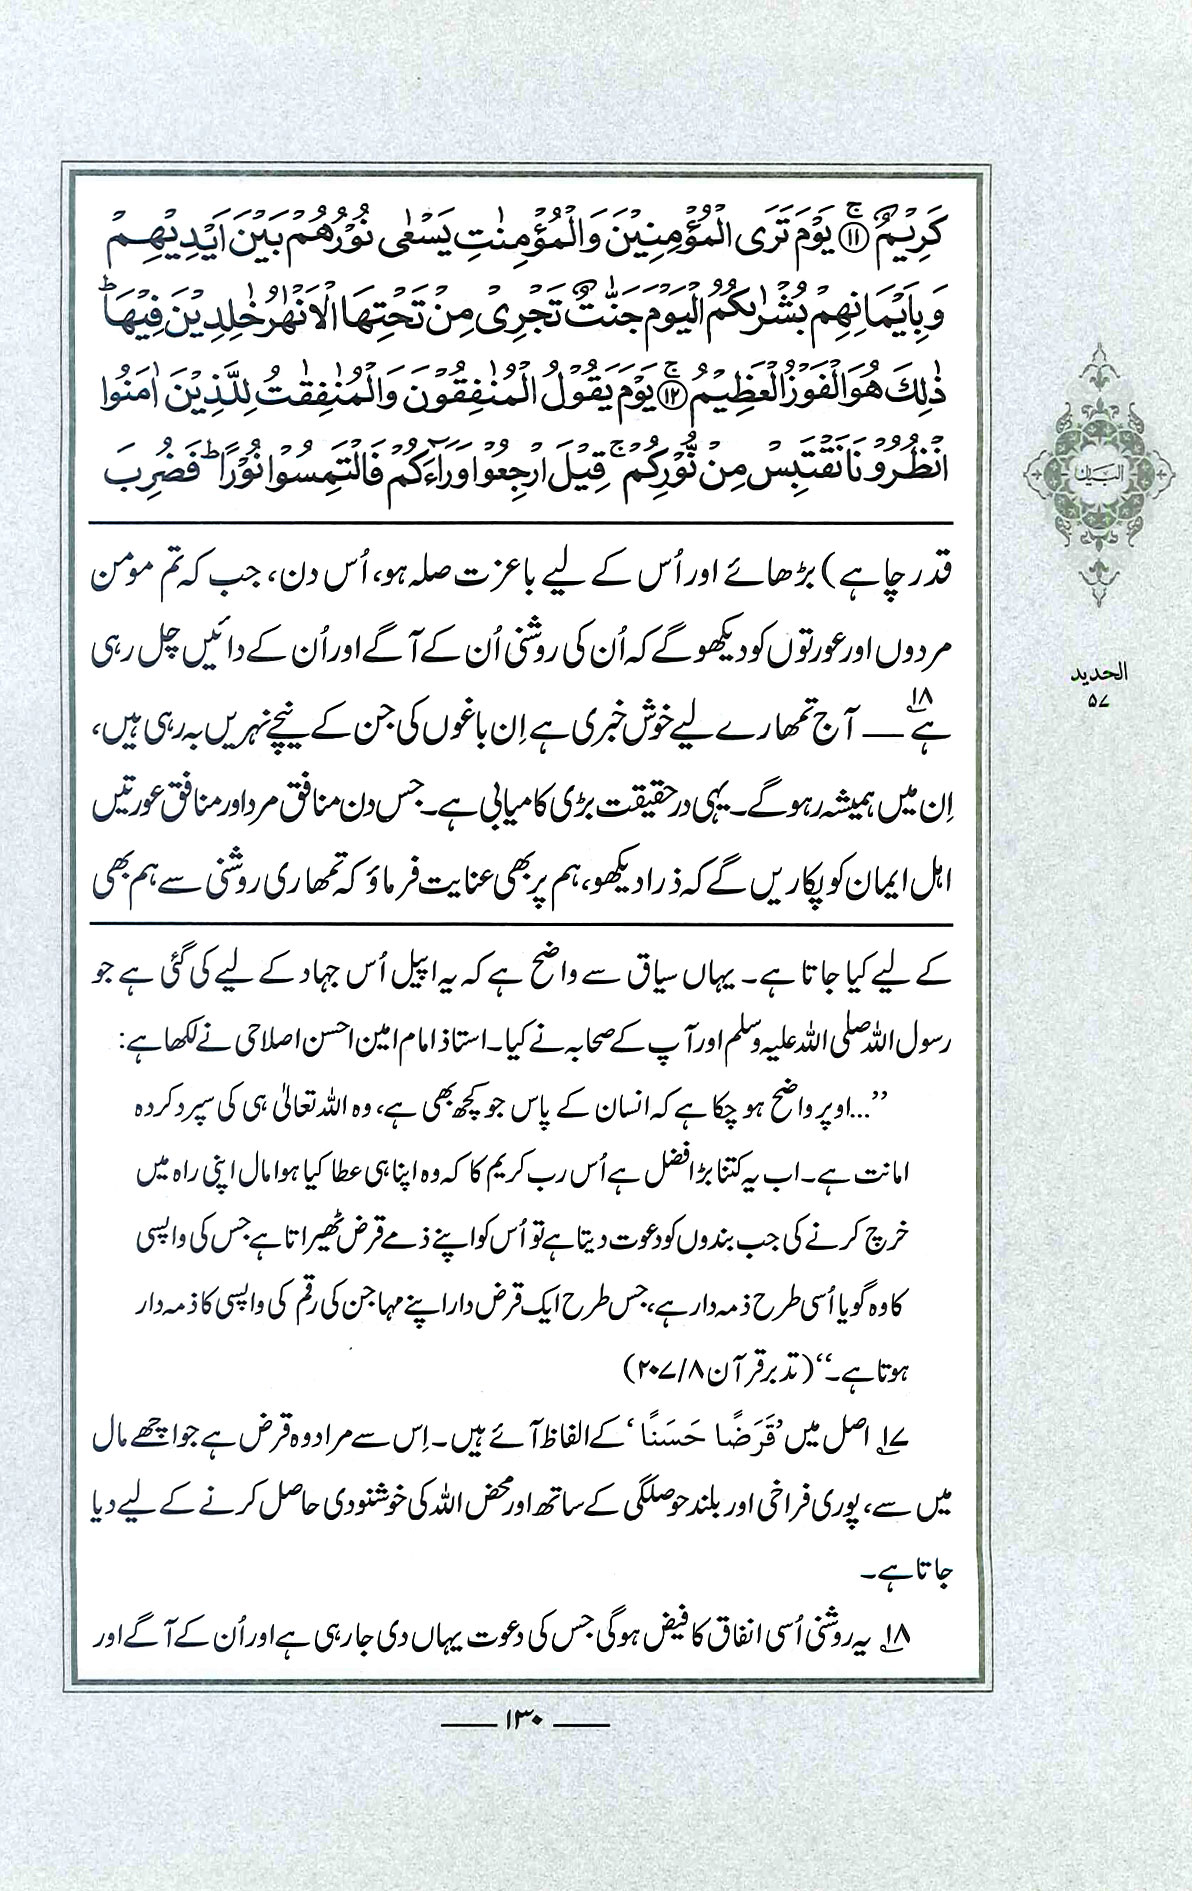 كَرِيْمٌ ۝۱۱ يَوْمَ تَرَى الْمُؤْمِنِيْنَ وَالْمُؤْمِنٰتِ يَسْعٰى نُوْرُهُمْ بَيْنَ اَيْدِيْهِمْ
وَبِاَيْمَانِهِمْ بُشْرٰىكُمُ الْيَوْمَ جَنّٰتٌ تَجْرِيْ مِنْ تَحْتِهَا الْاَنْهٰرُ خٰلِدِيْنَ فِيْهَا ؕ
ذٰلِكَ هُوَ الْفَوْزُ الْعَظِيْمُ ۝۱۲ يَوْمَ يَقُوْلُ الْمُنٰفِقُوْنَ وَالْمُنٰفِقٰتُ لِلَّذِيْنَ اٰمَنُوا
انْظُرُوْنَا نَقْتَبِسْ مِنْ نُّوْرِكُمْ ۚ قِيْلَ ارْجِعُوْا وَرَآءَكُمْ فَالْتَمِسُوْا نُوْرًا ؕ فَضُرِبَ
قدر چاہے) بڑھائے اور اُس کے لیے باعزت صلہ ہو، اُس دن، جب کہ تم مومن
مردوں اور عورتوں کو دیکھو گے کہ اُن کی روشنی اُن کے آگے اور اُن کے دائیں چل رہی
ہے۱۸ — آج تمھارے لیے خوش خبری ہے اِن باغوں کی جن کے نیچے نہریں بہ رہی ہیں،
اِن میں ہمیشہ رہو گے۔ یہی درحقیقت بڑی کامیابی ہے۔ جس دن منافق مرد اور منافق عورتیں
اہل ایمان کو پکاریں گے کہ ذرا دیکھو، ہم پر بھی عنایت فرماؤ کہ تمھاری روشنی سے ہم بھی
کے لیے کیا جاتا ہے۔ یہاں سیاق سے واضح ہے کہ یہ اپیل اُس جہاد کے لیے کی گئی ہے جو
رسول اللہ صلی اللہ علیہ وسلم اور آپ کے صحابہ نے کیا۔ استاذ امام امین احسن اصلاحی نے لکھا ہے:
”...اوپر واضح ہو چکا ہے کہ انسان کے پاس جو کچھ بھی ہے، وہ اللہ تعالیٰ ہی کی سپرد کردہ
امانت ہے۔ اب یہ کتنا بڑا فضل ہے اُس رب کریم کا کہ وہ اپنا ہی عطا کیا ہوا مال اپنی راہ میں
خرچ کرنے کی جب بندوں کو دعوت دیتا ہے تو اُس کو اپنے ذمے قرض ٹھیراتا ہے جس کی واپسی
کا وہ گویا اُسی طرح ذمہ دار ہے، جس طرح ایک قرض دار اپنے مہاجن کی رقم کی واپسی کا ذمہ دار
ہوتا ہے۔“ (تدبر قرآن ۸/ ۲۰۷)
۱۷ اصل میں ’قَرَضًا حَسَنًا‘ کے الفاظ آئے ہیں۔ اِس سے مراد وہ قرض ہے جو اچھے مال
میں سے، پوری فراخی اور بلند حوصلگی کے ساتھ اور محض اللہ کی خوشنودی حاصل کرنے کے لیے دیا
جاتا ہے۔
۱۸ یہ روشنی اُسی انفاق کا فیض ہوگی جس کی دعوت یہاں دی جا رہی ہے اور اُن کے آگے اور
البیان
الحدید
۵۷
— ۱۳۰ —